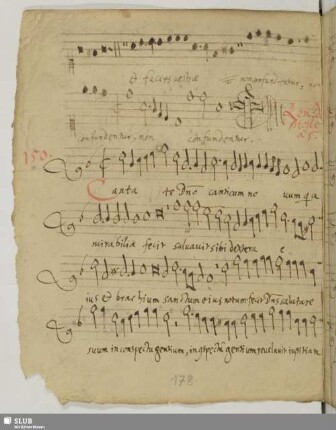 et facies vestrae non confundentur, non
confundentur, non confundentur.
150.
Cantate Dno canticum no vum q a
mirabilia fecit salvavit sibi dextera e
ius et brachium sanctum eius notum fecit Dns salutare
suum in conspectu gentium, in conspectu gentium revelavit iustitiam
178
SLUB